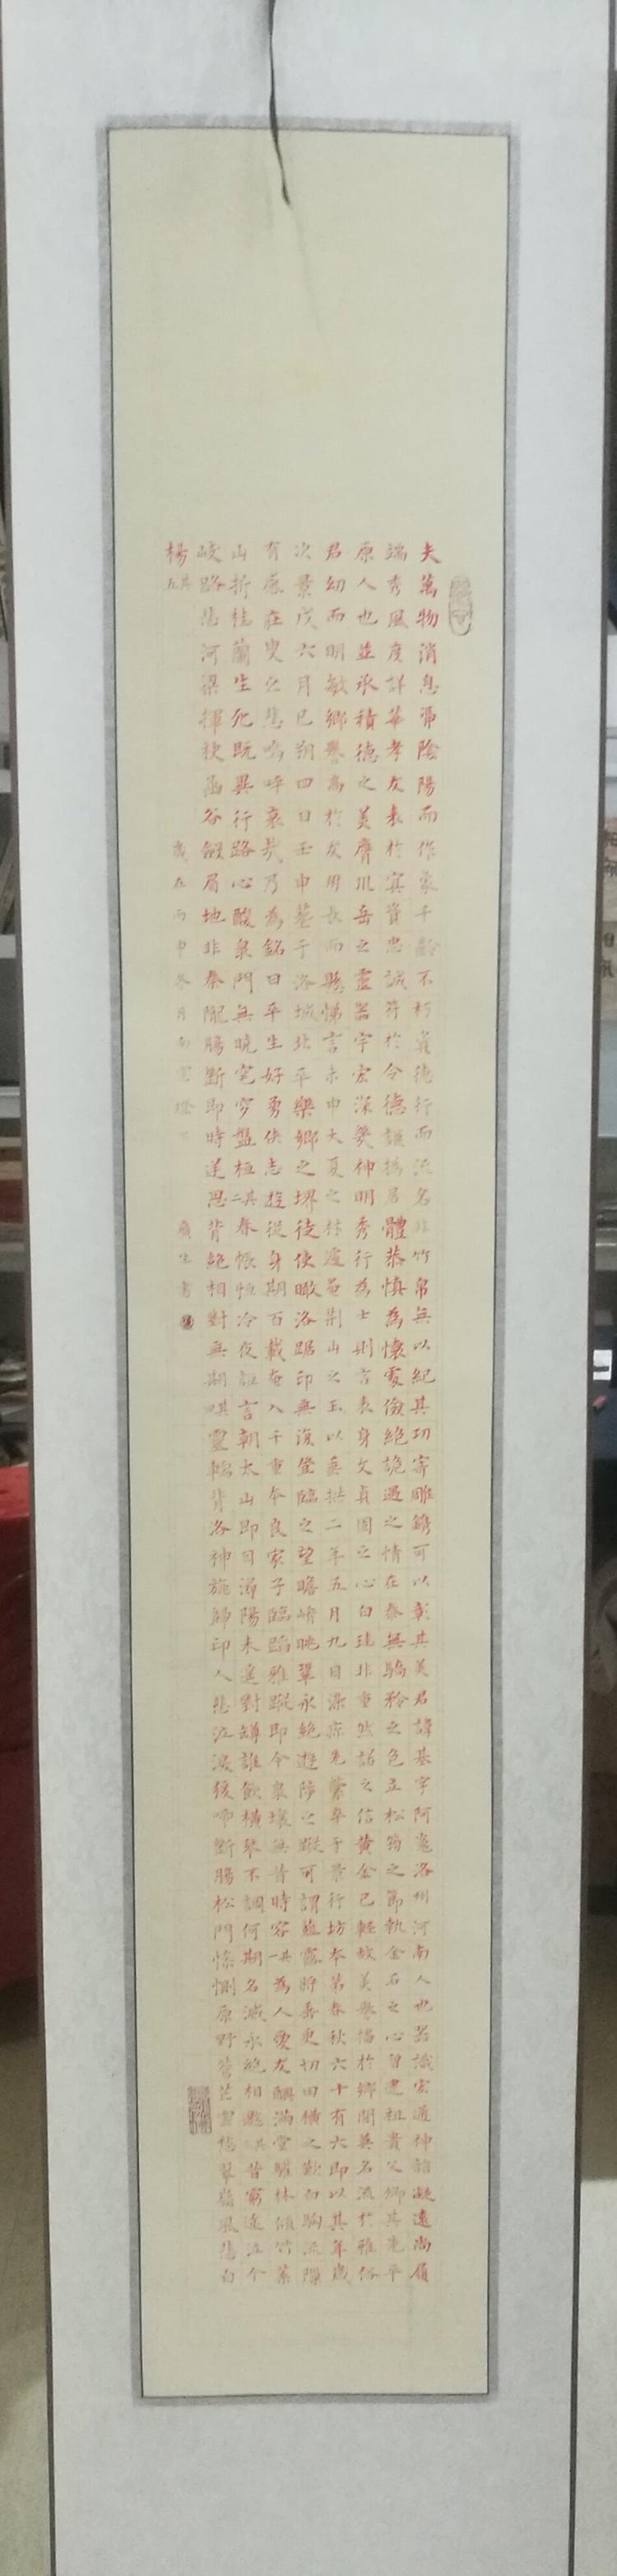 夫萬物消息帶陰陽而作家千齡不朽資德行而流名非竹帛無以紀其功寄雕鐫可以彰其美君諱基字阿鸞洛州河南人也器識宏通神韻凝遠尚
端秀風度詳華孝友表於冥資忠誠符於令德謙撝居體恭慎為懷處儉絕詭遇之情在泰無驕矜之色立松筠之節執金石之心曾遷祖貴父卿其先平
原人也並承積德之美膺川岳之靈器宇宏深幾神明秀行為士則言表身文貞固之心白珪非重然諾之信黃金已輕故美譽播於鄉閭英名流於雅俗
君幼而明敏鄉譽高於友用長而懸悌言未申大夏之材遽菴荆山之玉以垂拱二年五月九日染疾先縈卒于景行坊本第春秋六十有六即以其年歲
次景戌六月己朔四日壬申墓于洛城北平樂鄉之堺徒使瞰洛踞印無復登臨之望瞻崤眺鞏永絕遊陟之蹤可謂薤露將晞更切田橫之歎白駒流隙
有 莊叟之悲嗚呼哀哉乃為銘曰平生好勇俠志遊從身期百載奄入千重本良家子臨蹈雅蹤即今泉壤無昔時容其一為人愛友酬滿堂 林傾竹葉
山折桂蘭生死既異行路心酸泉門無曉窀穸盤桓其二春帳恒冷夜誰言朝太山即目 陽未還對罇誰飲橫琴不調何期名滅永絕相邀其三昔 途泣今
岐路悲河梁揮袂函谷 眉地非秦隴腸斷即時送恩背絕相對無期其四靈輀背洛神旐歸印人悲泣淚猨啼斷腸松門慘惻原野蒼茫雲愁翠嶺風悲白
楊其五 歲在丙申冬月 書